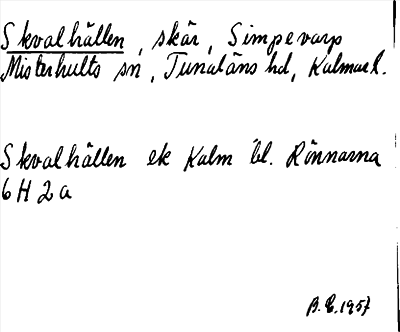 Skvalhällen, skär, Simpevarp
Misterhults sn, Tunaläns hd, Kalmar l.
Skvalhällen ek Kalm bl. Rönnarna
6 H 2 a
1957